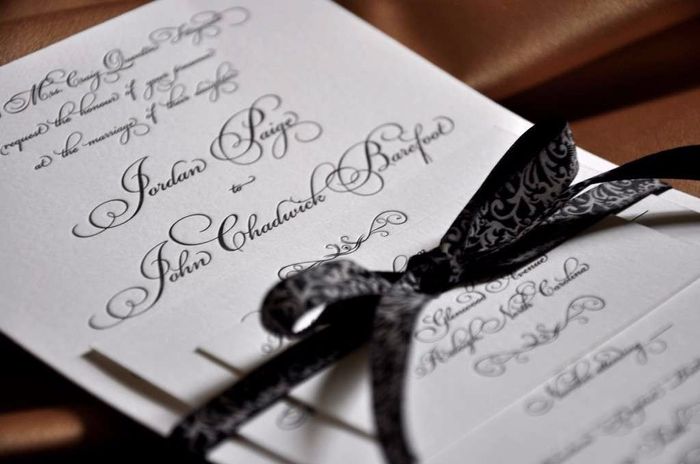 Mrs. Craig Quentin
request the honour of your presence
at the marriage of their daughter
Jordan Paige
to
John Chadwick Barefoot
Glenwood Avenue
Raleigh, North Carolina